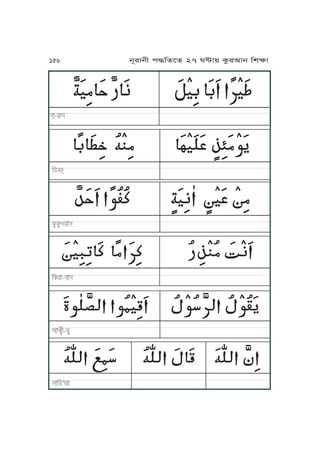 ১৫৬ নূরানী পদ্ধতিতে ২৭ ঘন্টায় কুরআন শিক্ষা
طَيْرًا اَبَابِيْلَ نَارٌ حَامِيَةٌ
না-রুন
يَوْمَئِذٍ عَلَيْهَا مِنْهُ خِطَابًا
মিনহু
مِنْ عَيْنٍ اٰنِيَةٍ كُفُوًا اَحَدٌ
কুফুওয়ান
اَنْتَ مُنْذِرُ كِرَامًا كَاتِبِيْنَ
কিরা-মান
يَقُوْلُ الرَّسُوْلُ اَقِيْمُوا الصَّلٰوةَ
আক্বী-মু
اِنَّ اللّٰهَ قَالَ اللّٰهُ سَمِعَ اللّٰهُ
সামি'আ